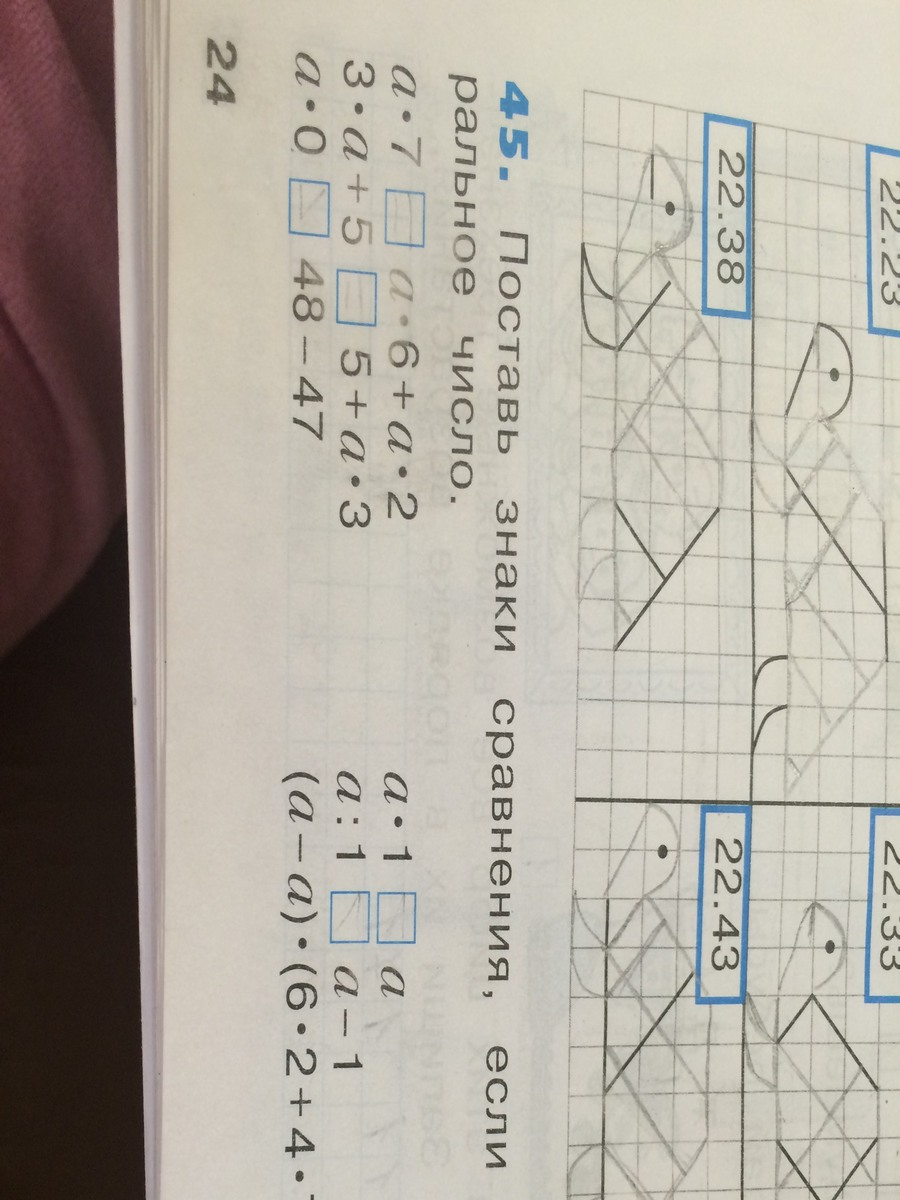 22.23
22.33
22.38
22.43
45. Поставь знаки сравнения, если
ральное число.
a·7 □ a·6+a·2
a·1 □ a
3·a+5 □ 5+a·3
a:1 □ a−1
a·0 □ 48−47
(a−a)·(6·2+4·
24